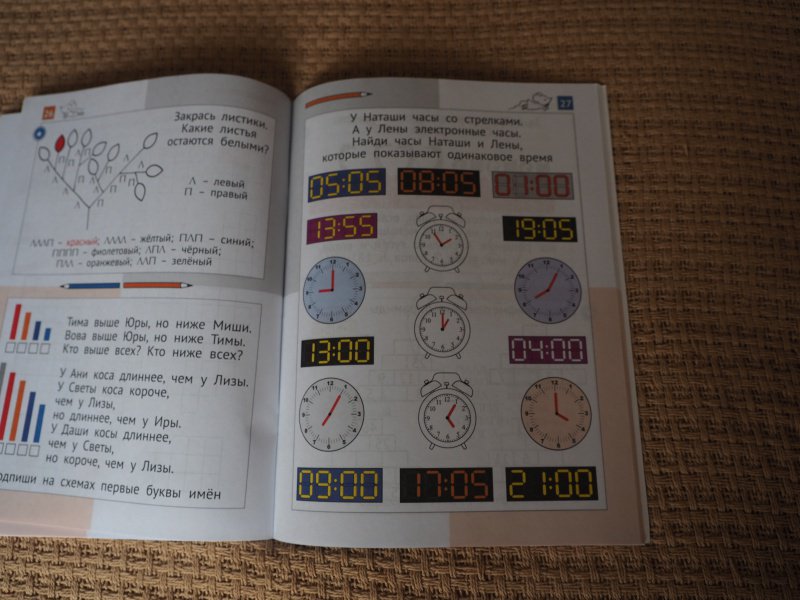 26
Закрась листики.
Какие листья
остаются белыми?
Л – левый
П – правый
ЛЛЛП – красный; ЛЛЛЛ – жёлтый; ПЛП – синий;
ПППП – фиолетовый; ЛПЛ – чёрный;
ПЛЛ – оранжевый; ЛЛП – зелёный
Тима выше Юры, но ниже Миши.
Вова выше Юры, но ниже Тимы.
Кто выше всех? Кто ниже всех?
У Ани коса длиннее, чем у Лизы.
У Светы коса короче,
чем у Лизы,
но длиннее, чем у Иры.
У Даши косы длиннее,
чем у Светы,
но короче, чем у Лизы.
одпиши на схемах первые буквы имён
27
У Наташи часы со стрелками.
А у Лены электронные часы.
Найди часы Наташи и Лены,
которые показывают одинаковое время
05:05 08:05 01:00
13:55 19:05
13:00 04:00
09:00 17:05 21:00